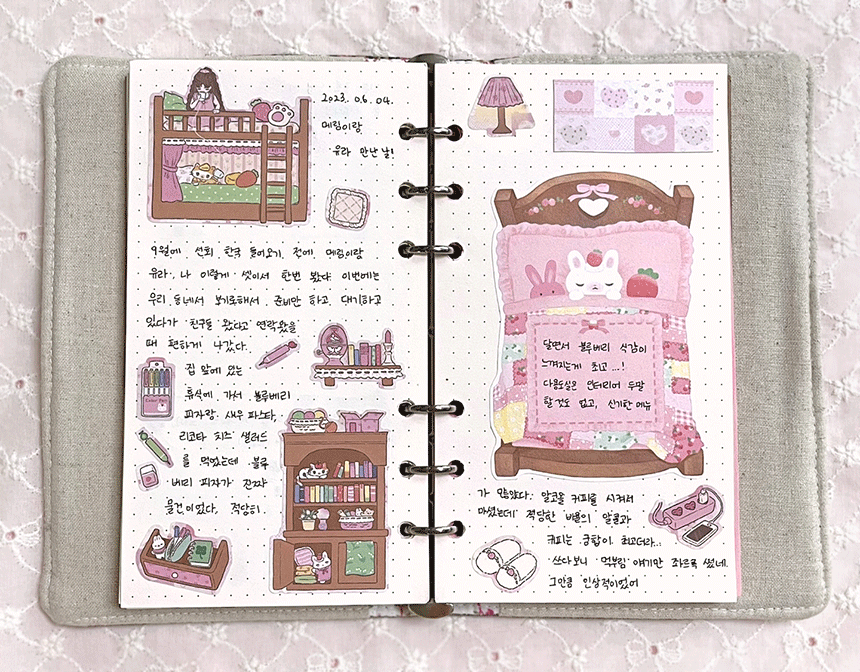 2023. 06. 04.
메림이랑
유라 만난 날!
9월에 선희 한국 들어오기 전에 메림이랑
유라, 나 이렇게 셋이서 한번 봤다. 이번에는
우리 동네서 보기로해서, 준비만 하고 대기하고
있다가 친구들 왔다고 연락왔을
때 편하게 나갔다.
집 앞에 있는
휴식에 가서 블루베리
피자랑, 새우 파스타,
리코타 치즈 샐러드
를 먹었는데 블루
베리 피자가 진짜
물건이었다. 적당히
Color Pen
달면서 블루베리 식감이
느껴지는게 최고...!
다용도실은 인테리어 두말
할것도 없고, 신기한 메뉴
가 많았다. 알코올 커피를 시켜서
마셨는데 적당한 비율의 알콜과
커피는 궁합이 최고더라...
쓰다보니 먹부림 얘기만 좌르륵 썼네.
그만큼 인상적이었어